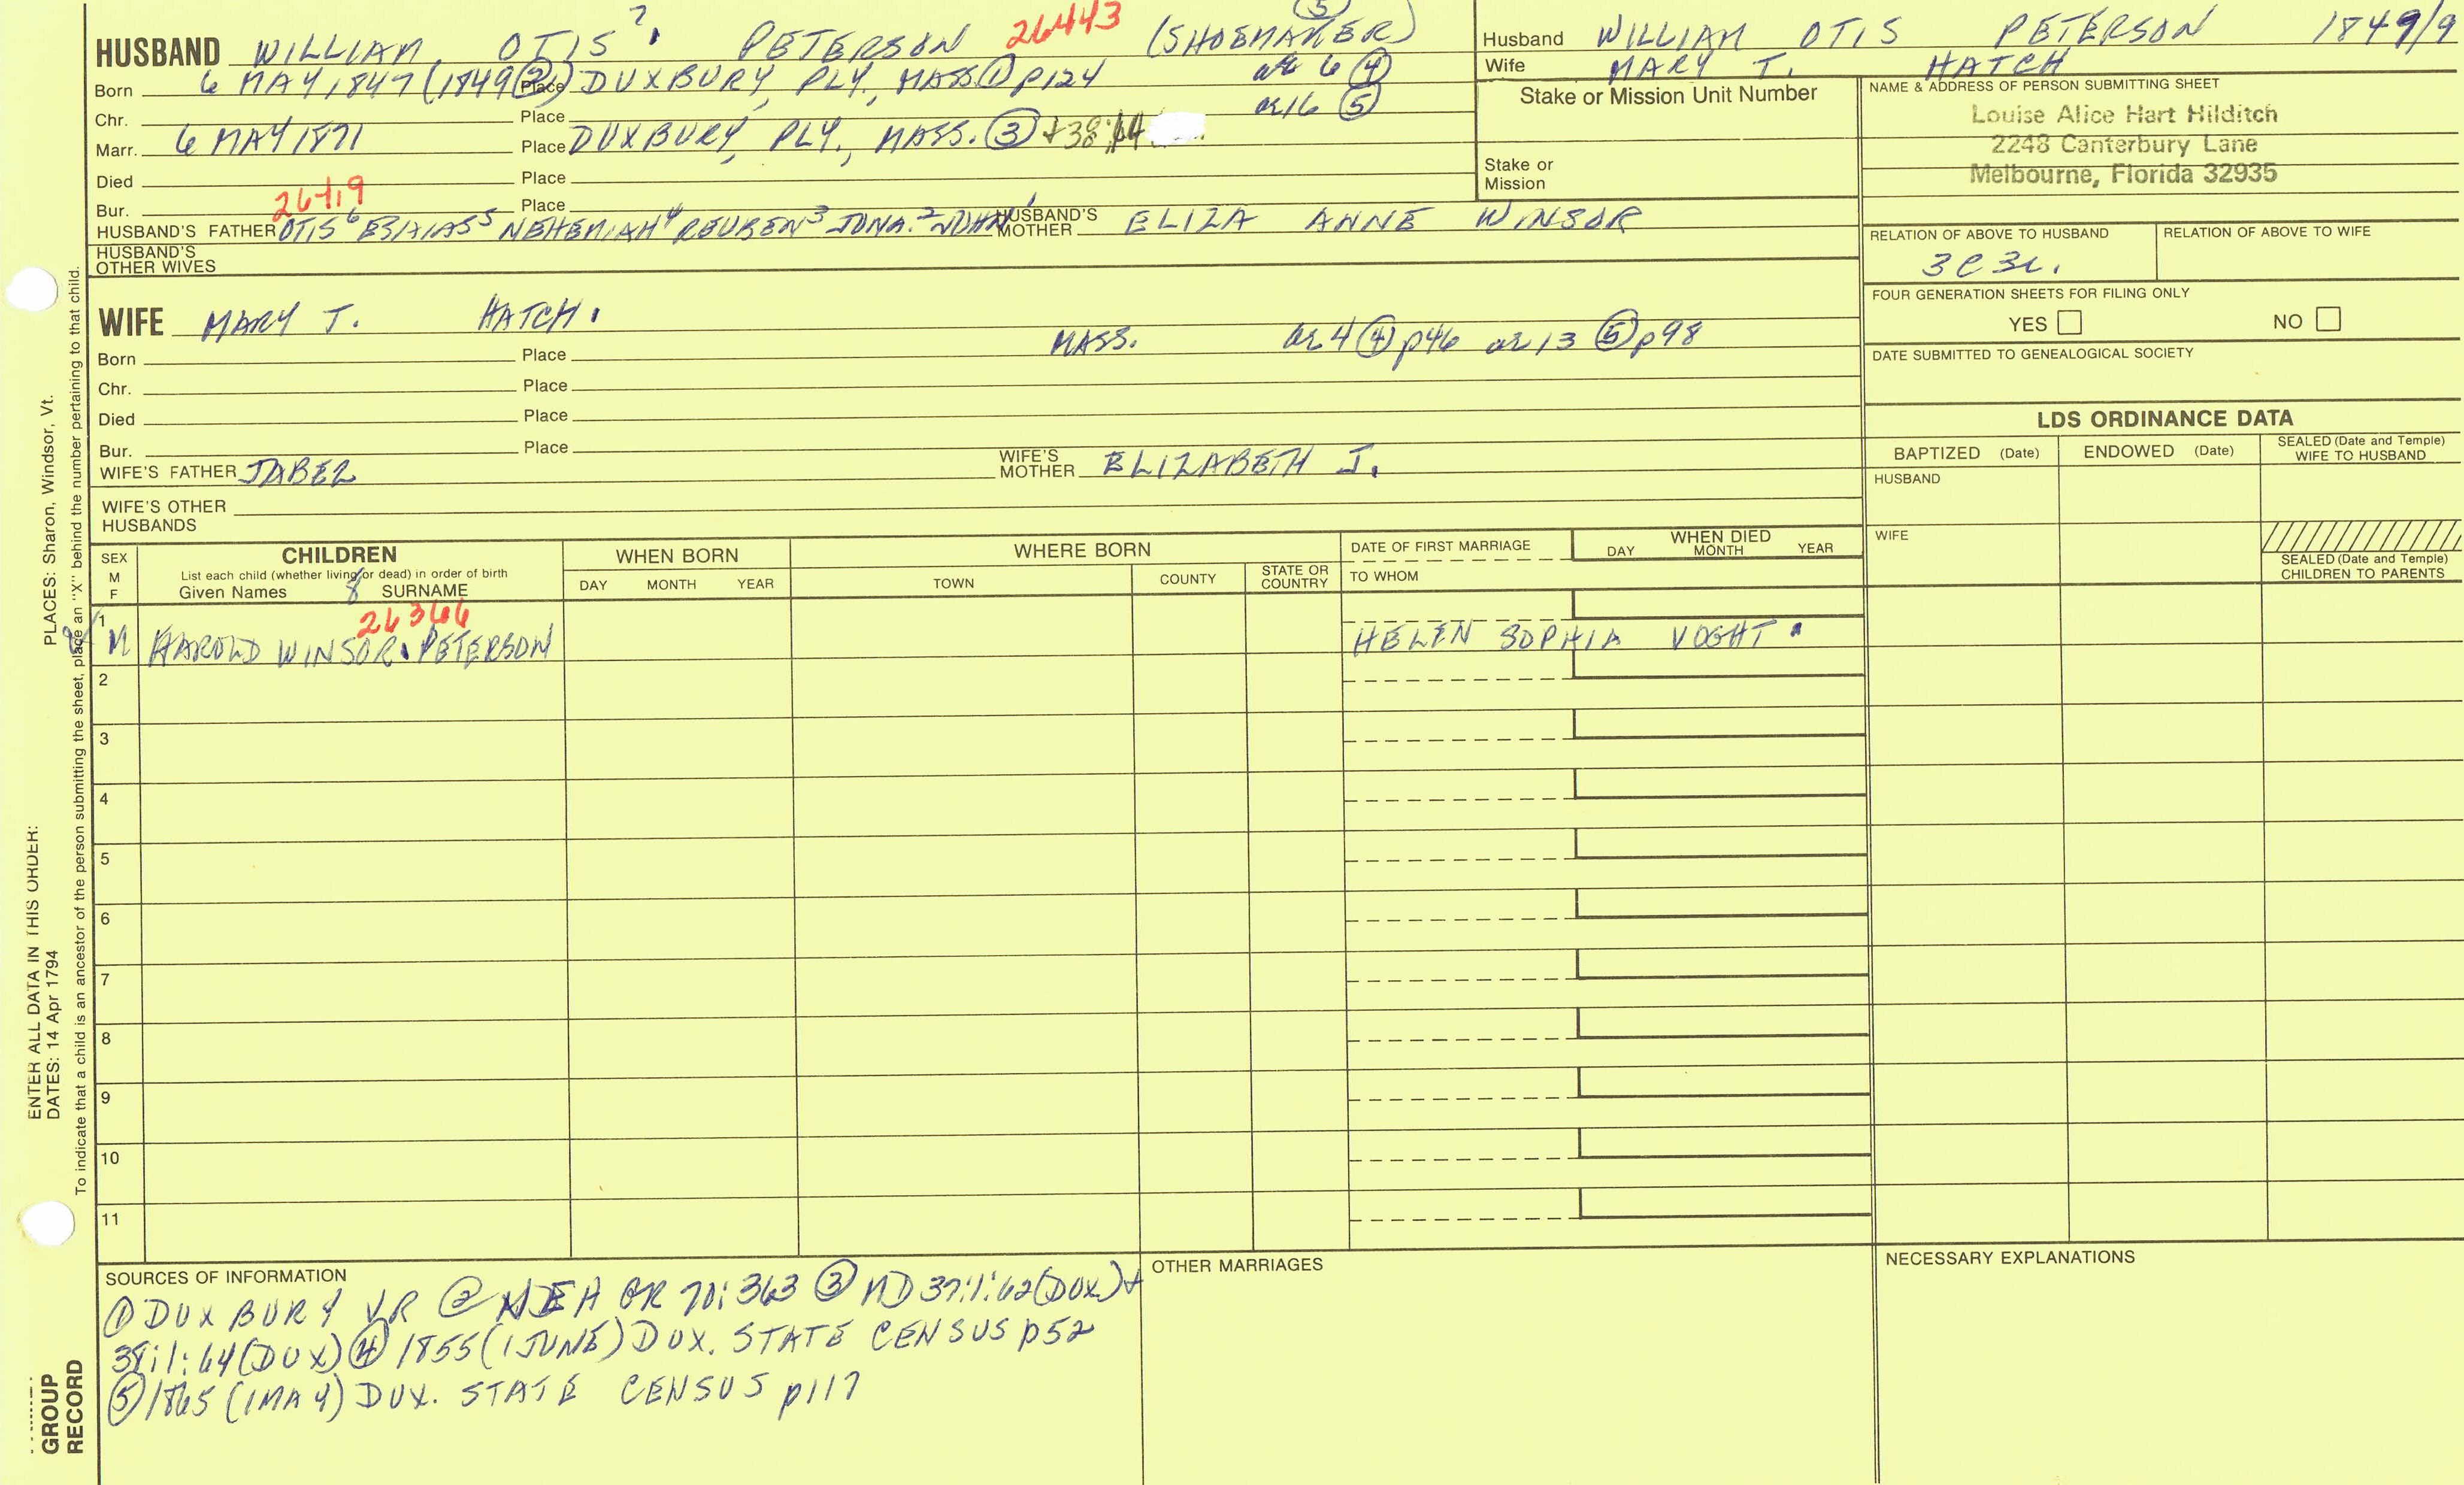 HUSBAND WILLIAM OTIS 7. PETERSON 26443 (SHOEMAKER) ⑤
Born 6 MAY 1847 (1849 ②) Place DUXBURY, PLY, MASS ① p124 ae 6 ④
Chr. Place ae 16 ⑤
Marr. 6 MAY 1871 Place DUXBURY, PLY., MASS. ③ +38:1:64
Died Place
Bur. Place
26419
HUSBAND'S FATHER OTIS 6 ESAIAS 5 NEHEMIAH 4 REUBEN 3 JONA. 2 JOHN 1 HUSBAND'S MOTHER ELIZA ANNE WINSOR
HUSBAND'S OTHER WIVES
WIFE MARY T. HATCH.
Born Place MASS. ae 4 ④ p46 ae 13 ⑤ p98
Chr. Place
Died Place
Bur. Place
WIFE'S FATHER JABEZ WIFE'S MOTHER ELIZABETH J.
WIFE'S OTHER HUSBANDS
Husband WILLIAM OTIS PETERSON 1849/9
Wife MARY T. HATCH
Stake or Mission Unit Number
Stake or Mission
NAME & ADDRESS OF PERSON SUBMITTING SHEET
Louise Alice Hart Hilditch
2248 Canterbury Lane
Melbourne, Florida 32935
RELATION OF ABOVE TO HUSBAND RELATION OF ABOVE TO WIFE
3C3R.
FOUR GENERATION SHEETS FOR FILING ONLY
YES NO
DATE SUBMITTED TO GENEALOGICAL SOCIETY
LDS ORDINANCE DATA
BAPTIZED (Date) ENDOWED (Date) SEALED (Date and Temple) WIFE TO HUSBAND
HUSBAND
WIFE
SEALED (Date and Temple) CHILDREN TO PARENTS
SEX M F
CHILDREN
List each child (whether living or dead) in order of birth
Given Names 8 SURNAME
WHEN BORN
DAY MONTH YEAR
WHERE BORN
TOWN COUNTY STATE OR COUNTRY
DATE OF FIRST MARRIAGE
TO WHOM
WHEN DIED
DAY MONTH YEAR
26366
1 M HAROLD WINSOR. PETERSON HELEN SOPHIA VOGHT.
2
3
4
5
6
7
8
9
10
11
SOURCES OF INFORMATION
① DUXBURY VR ② NEH GR 70:363 ③ MD 37:1:62 (DUX) +
38:1:64 (DUX) ④ 1855 (1 JUNE) DUX. STATE CENSUS p52
⑤ 1865 (1 MAY) DUX. STATE CENSUS p117
OTHER MARRIAGES
NECESSARY EXPLANATIONS
ENTER ALL DATA IN THIS ORDER:
DATES: 14 Apr 1794 PLACES: Sharon, Windsor, Vt.
To indicate that a child is an ancestor of the person submitting the sheet, place an "X" behind the number pertaining to that child.
GROUP
RECORD